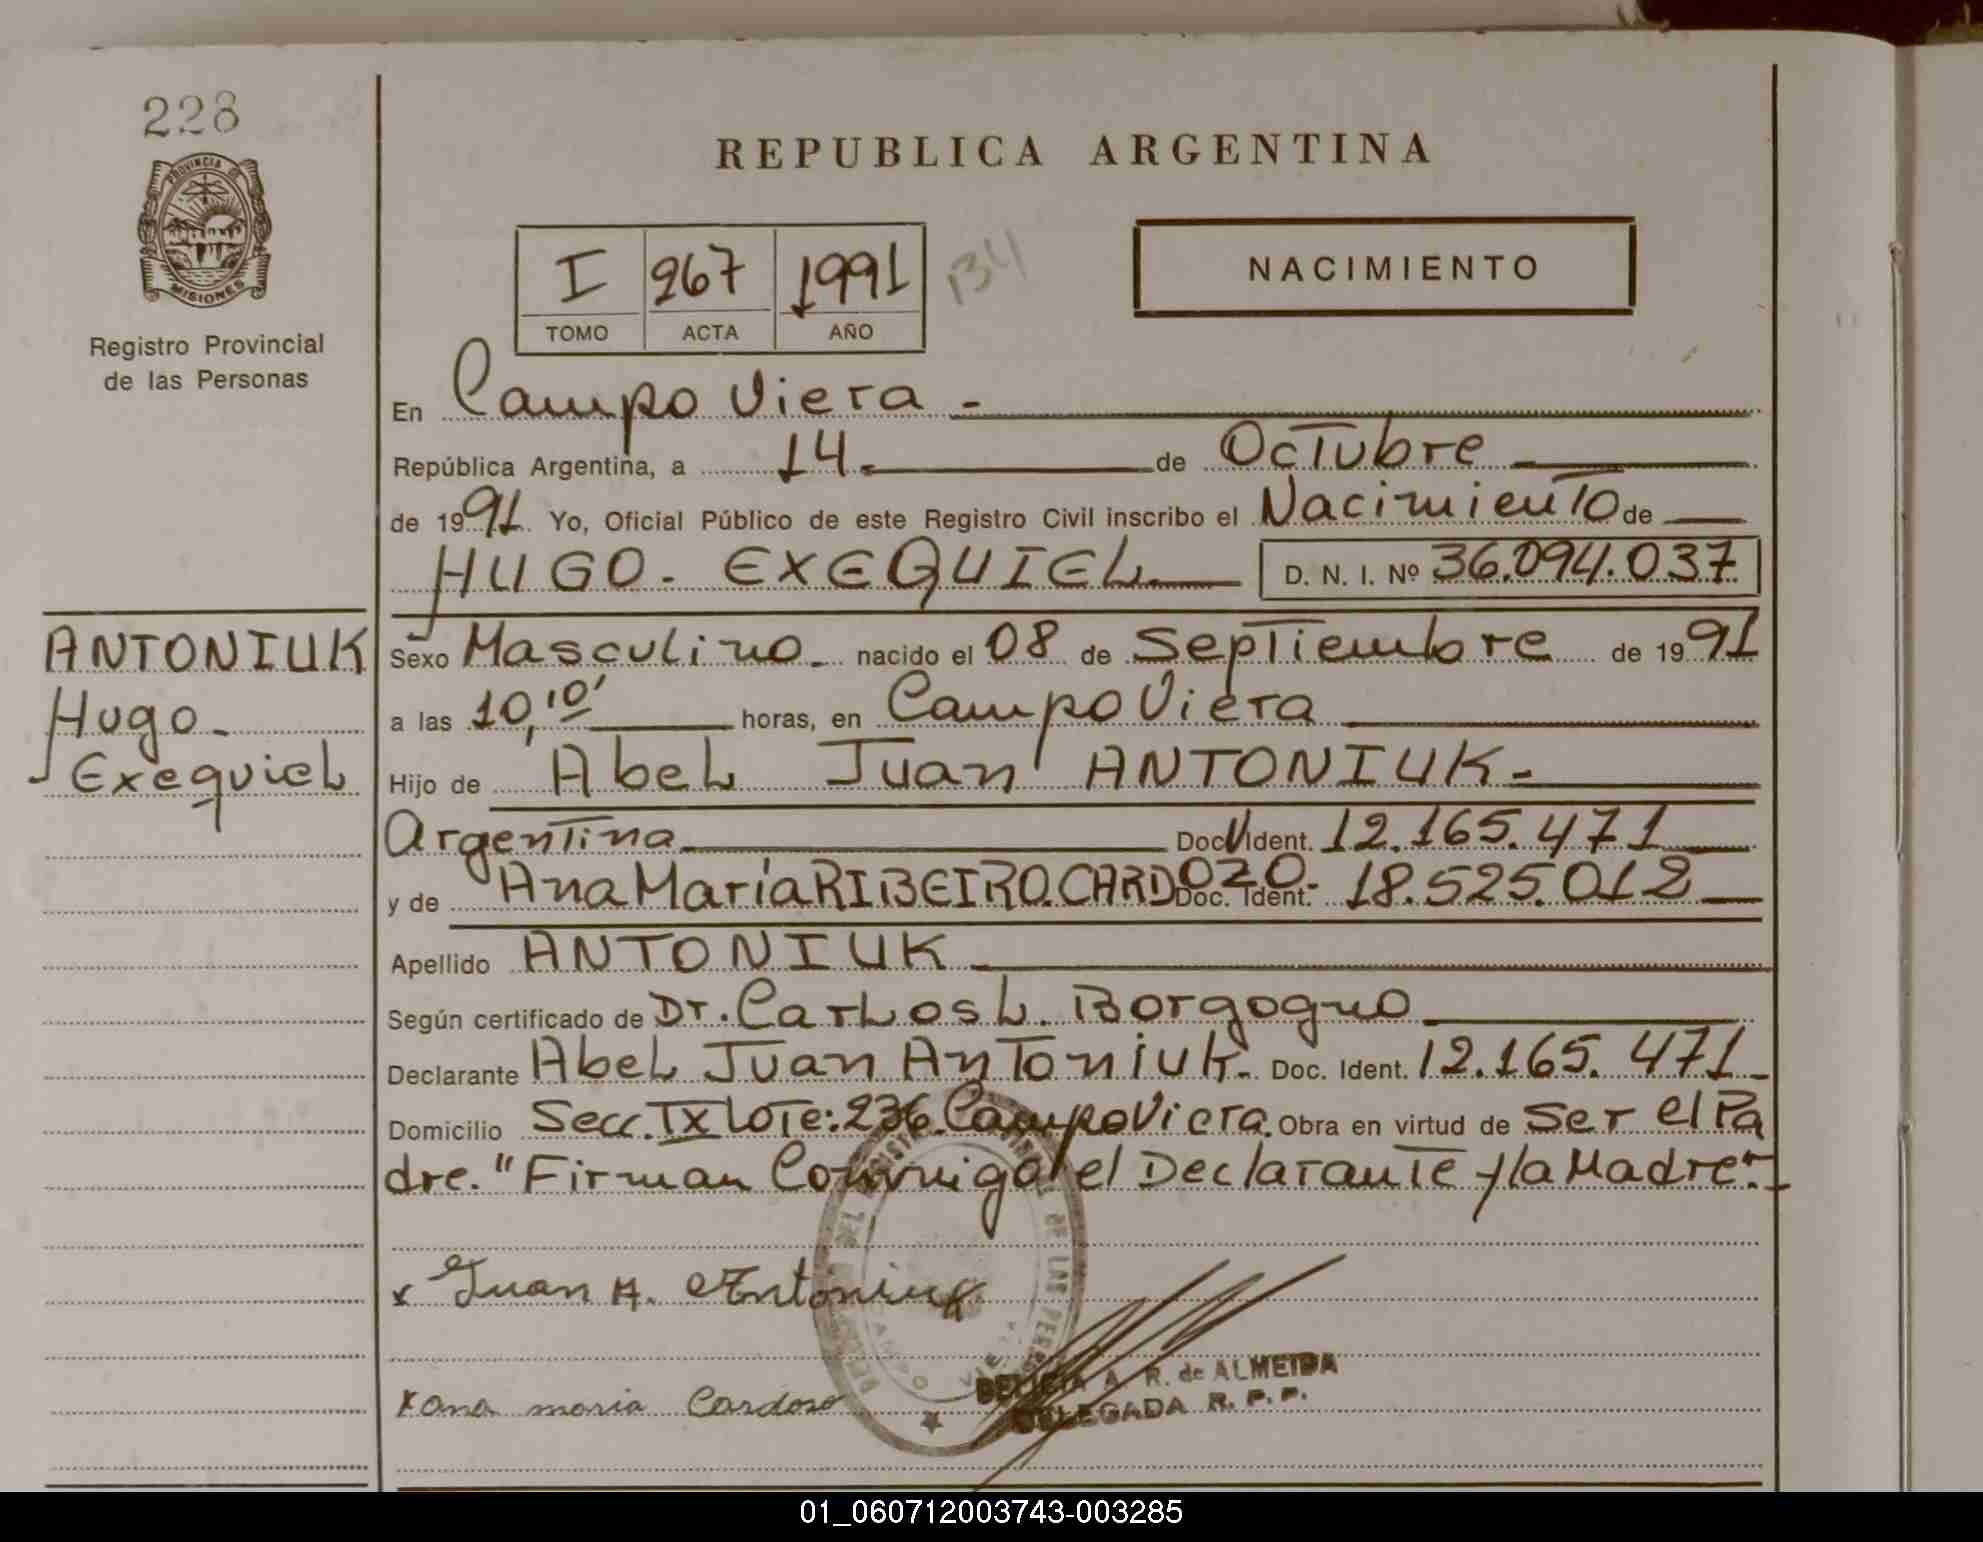 228
PROVINCIA DE
MISIONES
Registro Provincial
de las Personas
REPUBLICA ARGENTINA
I 267 1991 134
TOMO ACTA AÑO
NACIMIENTO
En Campo Viera -
República Argentina, a 14 de Octubre
de 1991 Yo, Oficial Público de este Registro Civil inscribo el Nacimiento de
HUGO. EXEQUIEL D. N. I. Nº 36.094.037
ANTONIUK
Hugo
Exequiel
Sexo Masculino nacido el 08 de Septiembre de 1991
a las 10,10' horas, en Campo Viera
Hijo de Abel Juan ANTONIUK-
Argentina Doc. Ident. 12.165.471
y de Ana María RIBEIRO.CARDOZO- Doc. Ident. 18.525.012
Apellido ANTONIUK
Según certificado de Dr. Carlos L. Borgogno
Declarante Abel Juan Antoniuk- Doc. Ident. 12.165.471
Domicilio Secc. IX Lote: 236. Campo Viera. Obra en virtud de ser el Pa
dre. "Firman Conmigo el Declarante y la Madre".-
x Juan A. Antoniuk
x ana maria Cardoso
DELICIA A. R. de ALMEIDA
DELEGADA R. P. P.
01_060712003743-003285